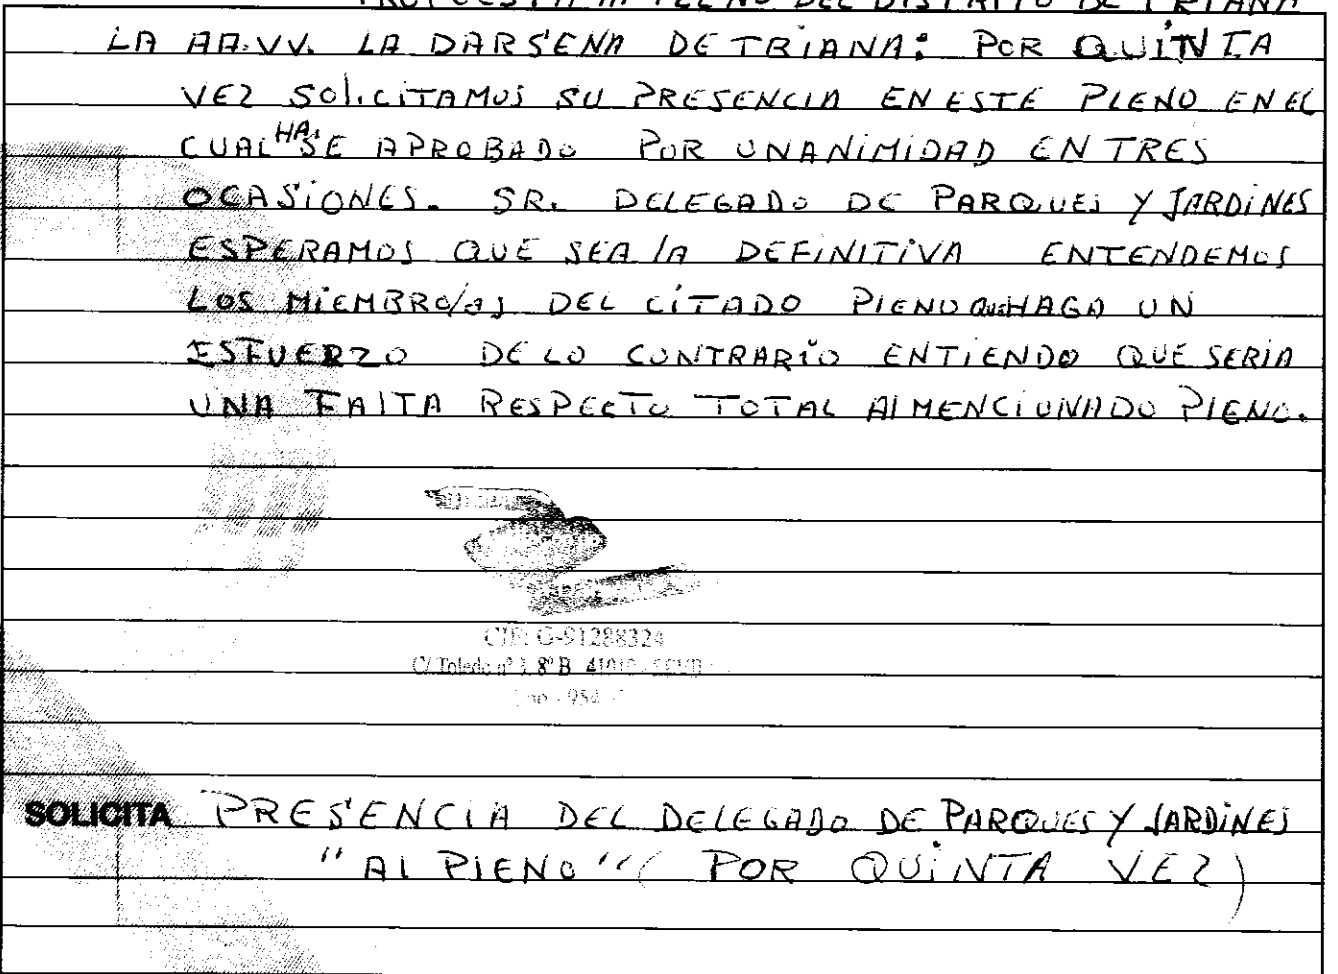 PROPUESTA AL PLENO DEL DISTRITO DE TRIANA
LA AA.VV. LA DARSENA DE TRIANA: POR QUINTA
VEZ SOLICITAMOS SU PRESENCIA EN ESTE PLENO EN EL
CUAL HA SE APROBADO POR UNANIMIDAD EN TRES
OCASIONES. SR. DELEGADO DE PARQUES Y JARDINES
ESPERAMOS QUE SEA LA DEFINITIVA ENTENDEMOS
LOS MIEMBRO/AS DEL CITADO PLENO QUE HAGA UN
ESFUERZO DE LO CONTRARIO ENTIENDO QUE SERIA
UNA FALTA RESPECTO TOTAL AL MENCIONADO PLENO.
CIF: G-91288324
C/ Toledo nº 3, 8º B 41010
954
SOLICITA PRESENCIA DEL DELEGADO DE PARQUES Y JARDINES
"AL PLENO" (POR QUINTA VEZ)